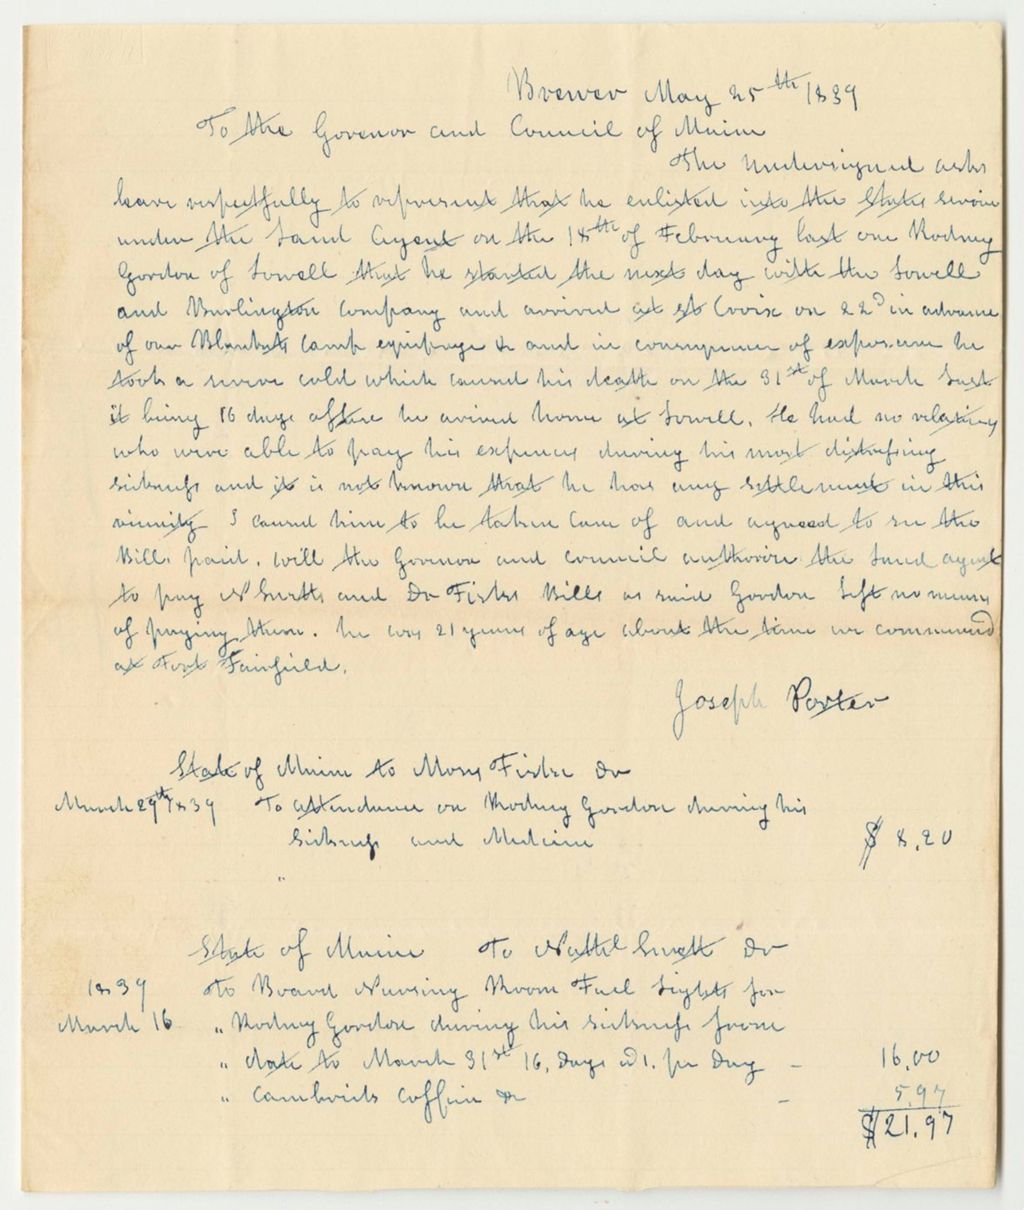 Brewer May 25th 1839
To the Govenor and Council of Maine
The undersigned asks
leave respectfully to represent that he enlisted into the States servise
under the Land Agent on the 18th of February last one Rodney
Gordon of Lowell that he started the next day with the Lowell
and Burlington Company and arrived at St Croix on 22d in advance
of our Blankets Camp equipage &c and in consequence of exposure he
took a severe cold which caused his death on the 31st of March Last
it being 16 days after he arived home at Lowell. He had no relatives
who were able to pay his expences during his most distressing
sickness and it is not known that he has any settlement in this
vicinity I caused him to be taken Care of and agreed to see the
Bills paid. Will the Govenor and Council authorise the Land agent
to pay and Dr Fiskes Bills as said Gordon Left no means
of paying them. he was 21 years of age about the time we commenced
at Fort Fairfield.
Joseph Porter
State of Maine to Moses Fiske Dr
March 29th 1839 To attendance on Rodney Gordon during his
Sickness and Medicine $ 8.20
"
State of Maine To Nathl Dr
1839 To Board Nursing Room Fuel Lights for
March 16 " Rodney Gordon during his sickness from
" date to March 31st 16, days @1. per Day - 16,00
" Coffin &c - 5.97
$21.97